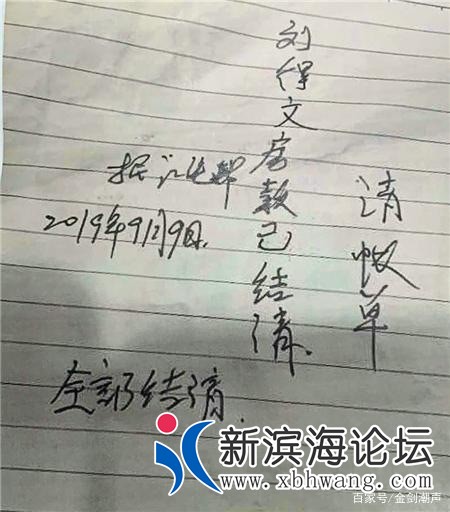 清帐单
刘得文房款已结清.
2019年9月9日.
全部结清.
新滨海论坛
www.xbhwang.com
百家号/金剑潮声